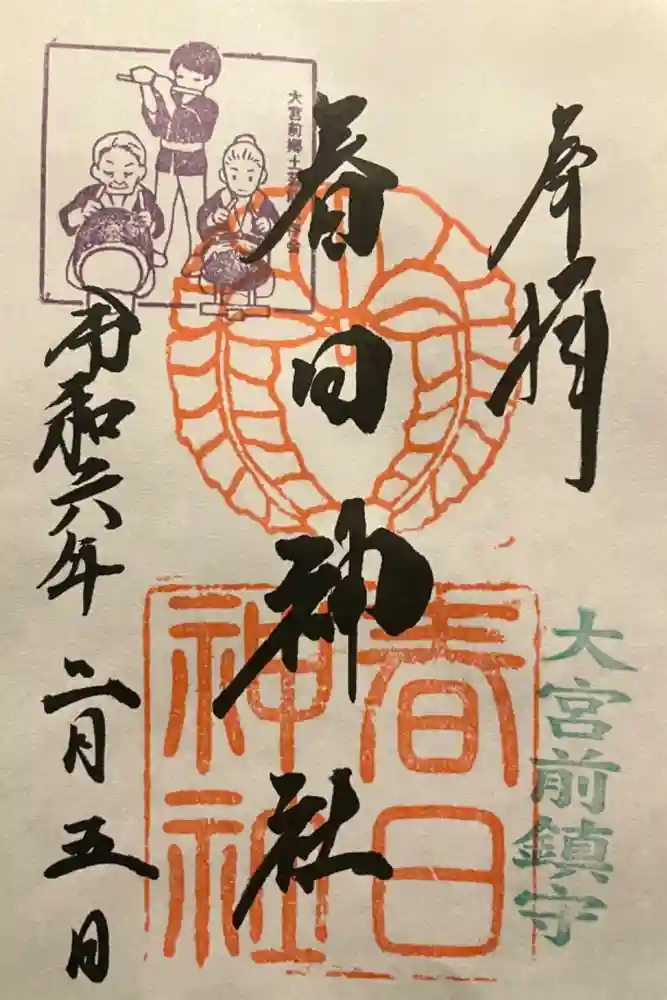 奉拝
大宮前鎮守
春日神社
春日
神社
大宮前郷土芸
令和六年
二月五日